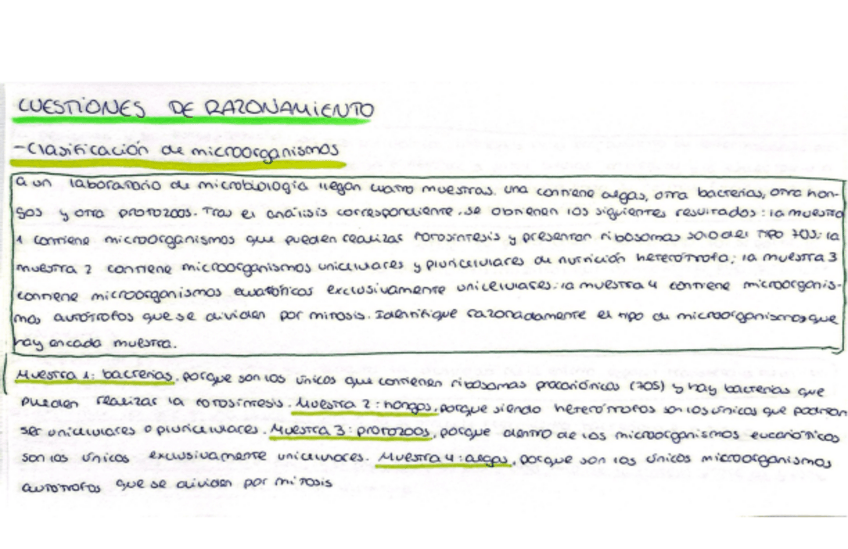 CUESTIONES DE RAZONAMIENTO
-Clasificación de microorganismos
a un laboratorio de microbiología llegan cuatro muestras. una contiene algas, otra bacterias, otra hon-
gos y otra protozoos. Tras el análisis correspondiente, se obtienen los siguientes resultados: la muestra
1 contiene microorganismos que pueden realizar fotosíntesis y presentan ribosomas solo del tipo 70S; la
muestra 2 contiene microorganismos unicelulares y pluricelulares de nutrición heterótrofa; la muestra 3
contiene microorganismos eucarióticos exclusivamente unicelulares; la muestra 4 contiene microorganis-
mos autótrofos que se dividen por mitosis. Identifique razonadamente el tipo de microorganismos que
hay en cada muestra.
Muestra 1: bacterias, porque son los únicos que contienen ribosomas procarióticos (70S) y hay bacterias que
pueden realizar la fotosíntesis. Muestra 2: hongos, porque siendo heterótrofos son los únicos que podrían
ser unicelulares o pluricelulares. Muestra 3: protozoos, porque dentro de los microorganismos eucarióticos
son los únicos exclusivamente unicelulares. Muestra 4: algas, porque son los únicos microorganismos
autótrofos que se dividen por mitosis